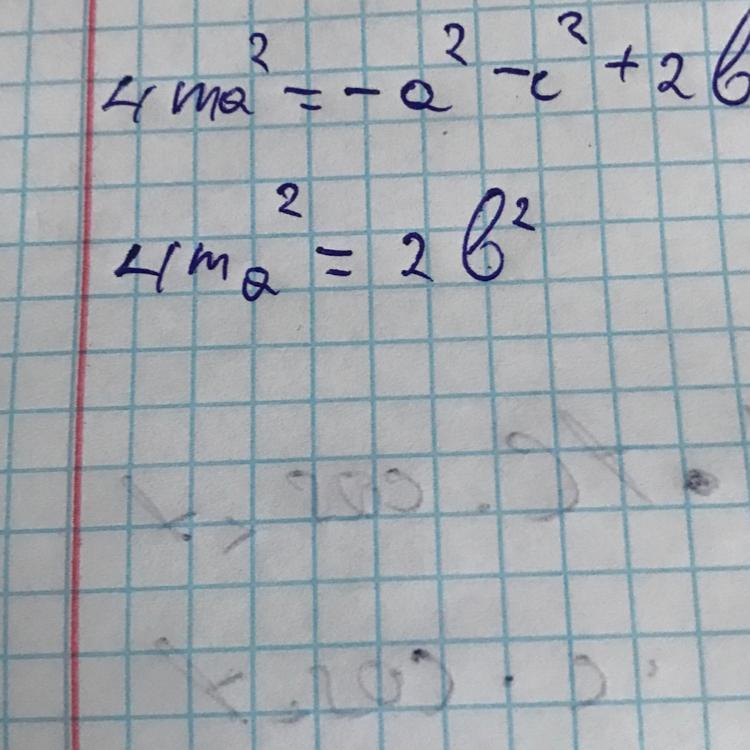 4mₐ² = -a² - c² + 2b
4mₐ² = 2b²